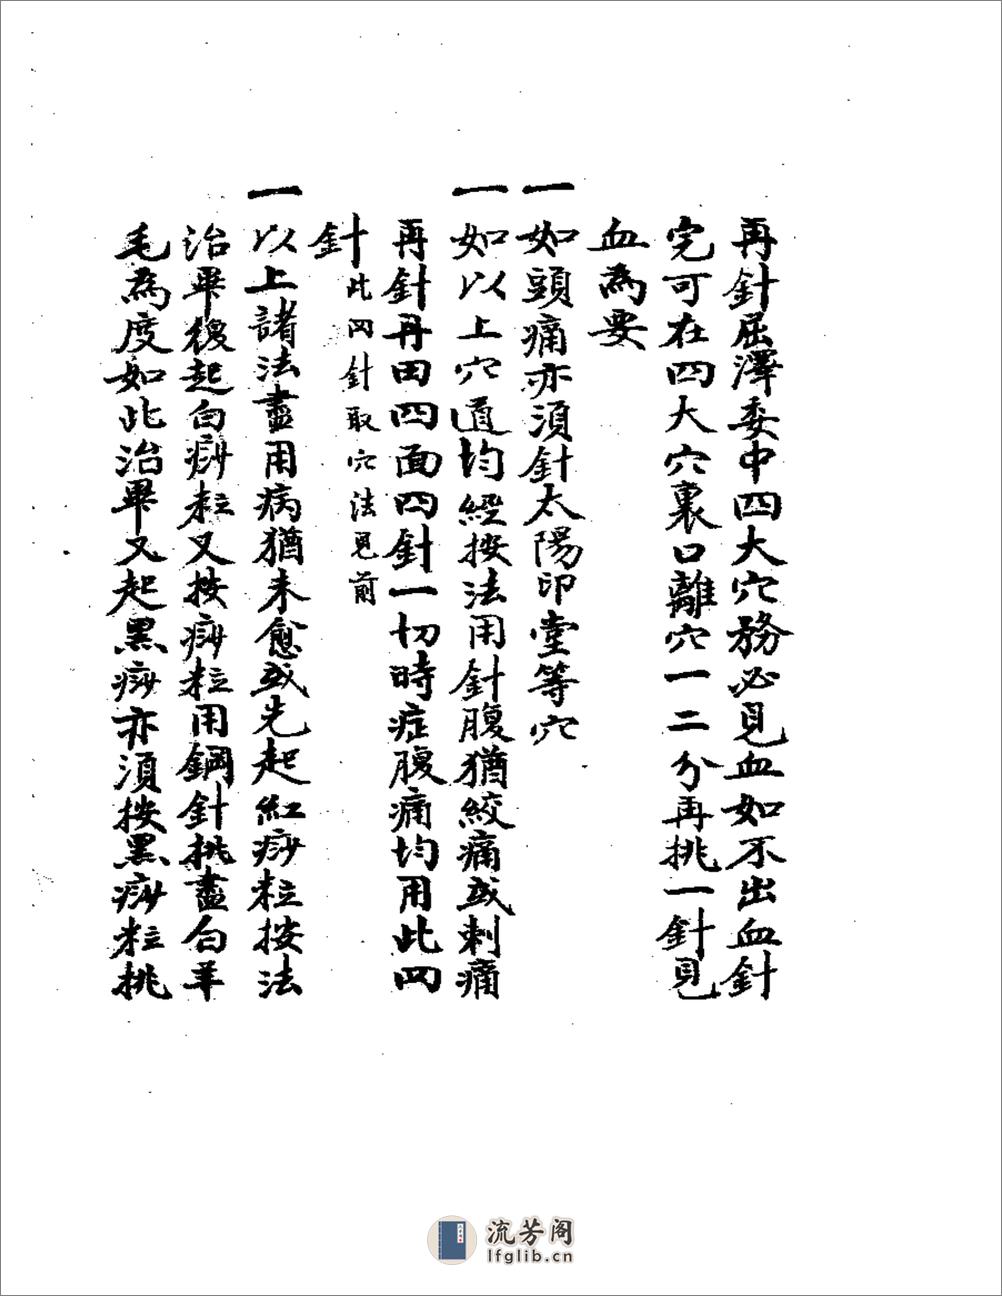 再針屈澤委中四大穴務必見血如不出血針
完可在四大穴裏口離穴一二分再挑一針見
血為要
一如頭痛亦須針太陽印堂等穴
一如以上穴道均經按法用針腹猶絞痛或刺痛
再針丹田四面四針一切時症腹痛均用此四
針此四針取穴法見前
一以上諸法盡用病猶未愈或先起紅痧粒按法
治畢後起白痧粒又按痧粒用鋼針挑盡白羊
毛為度如此治畢又起黑痧亦須按黑痧粒挑
流芳阁
lfglib.cn